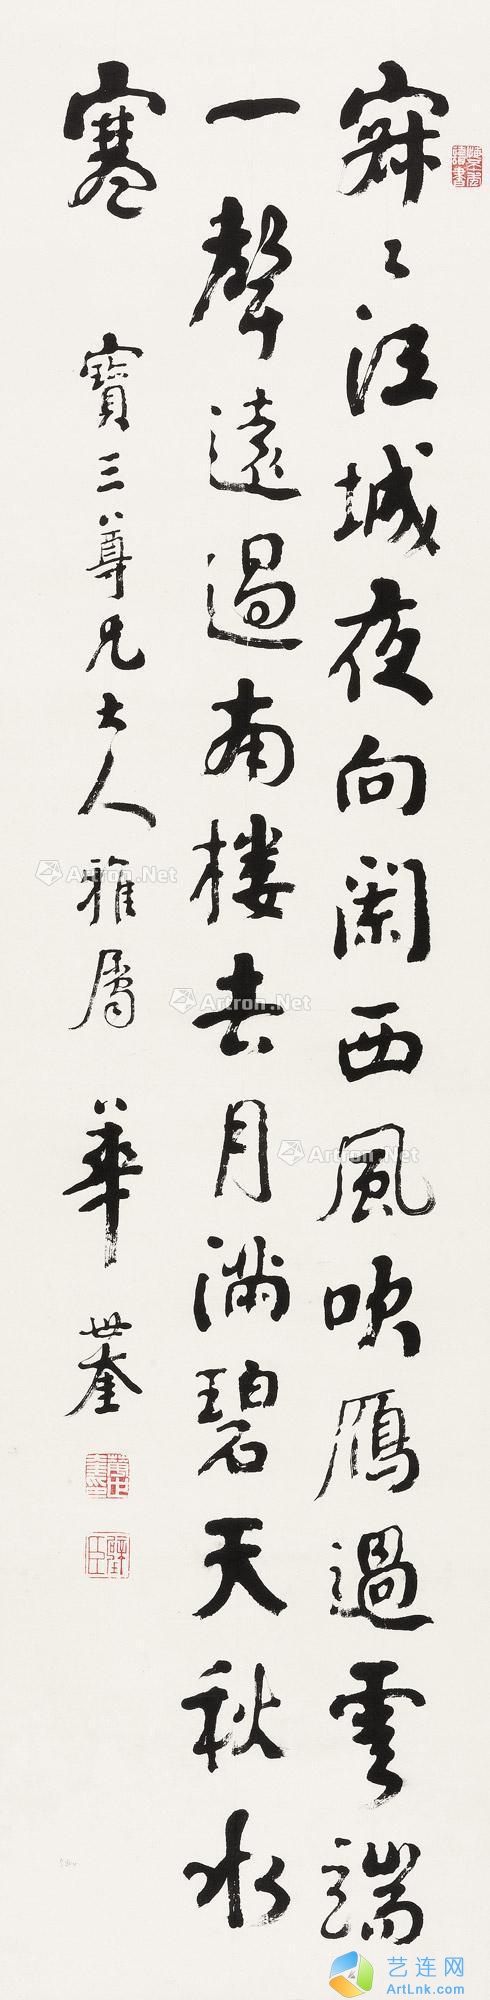 寂〻江城夜向闌西風吹雁過雲端
一聲遠過南樓去月滿碧天秋水
寒
寶三尊兄大人雅屬
華世奎
Artron.Net
Artron.Net
Artron.Net
艺连网
ArtLnk.com